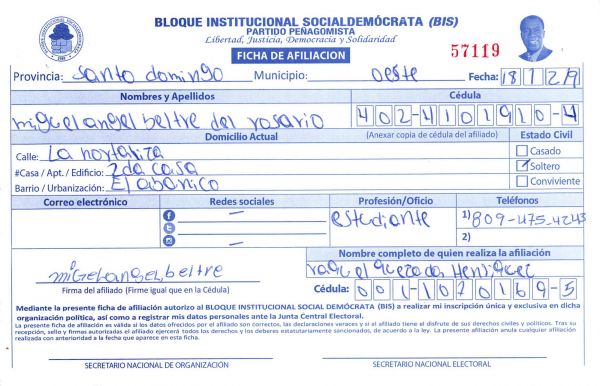 BLOQUE INSTITUCIONAL SOCIALDEMÓCRATA (BIS)
PARTIDO PEÑAGOMISTA
Libertad, Justicia, Democracia y Solidaridad
FICHA DE AFILIACION
57119
Provincia: Santo domingo Municipio: oeste Fecha: 18 12 9
Nombres y Apellidos Cédula
miguel angel beltre del rosario 402-4101910-4
Domicilio Actual (Anexar copia de cédula del afiliado) Estado Civil
Calle: La hortaliza Casado
#Casa / Apt. / Edificio: 2da casa Soltero
Barrio / Urbanización: El abanico Conviviente
Correo electrónico Redes sociales Profesión/Oficio Teléfonos
estudiante 1) 809-475-4243
2)
Nombre completo de quien realiza la afiliación
miguelangel beltre raquel quezada Henriquez
Firma del afiliado (Firme igual que en la Cédula) Cédula: 001-1070169-5
Mediante la presente ficha de afiliación autorizo al BLOQUE INSTITUCIONAL SOCIAL DEMÓCRATA (BIS) a realizar mi inscripción única y exclusiva en dicha
organización política, así como a registrar mis datos personales ante la Junta Central Electoral.
La presente ficha de afiliación es válida si los datos ofrecidos por el afiliado son correctos, las declaraciones veraces y si el afiliado tiene el disfrute de sus derechos civiles y políticos. Tras su
recepción, sello y firmas autorizadas el afiliado ejercerá todos los derechos y los deberes estatutariamente sancionados, de acuerdo a la ley. La presente afiliación anula cualquier afiliación
realizada con anterioridad a la fecha que aparece en esta ficha.
SECRETARIO NACIONAL DE ORGANIZACIÓN SECRETARIO NACIONAL ELECTORAL